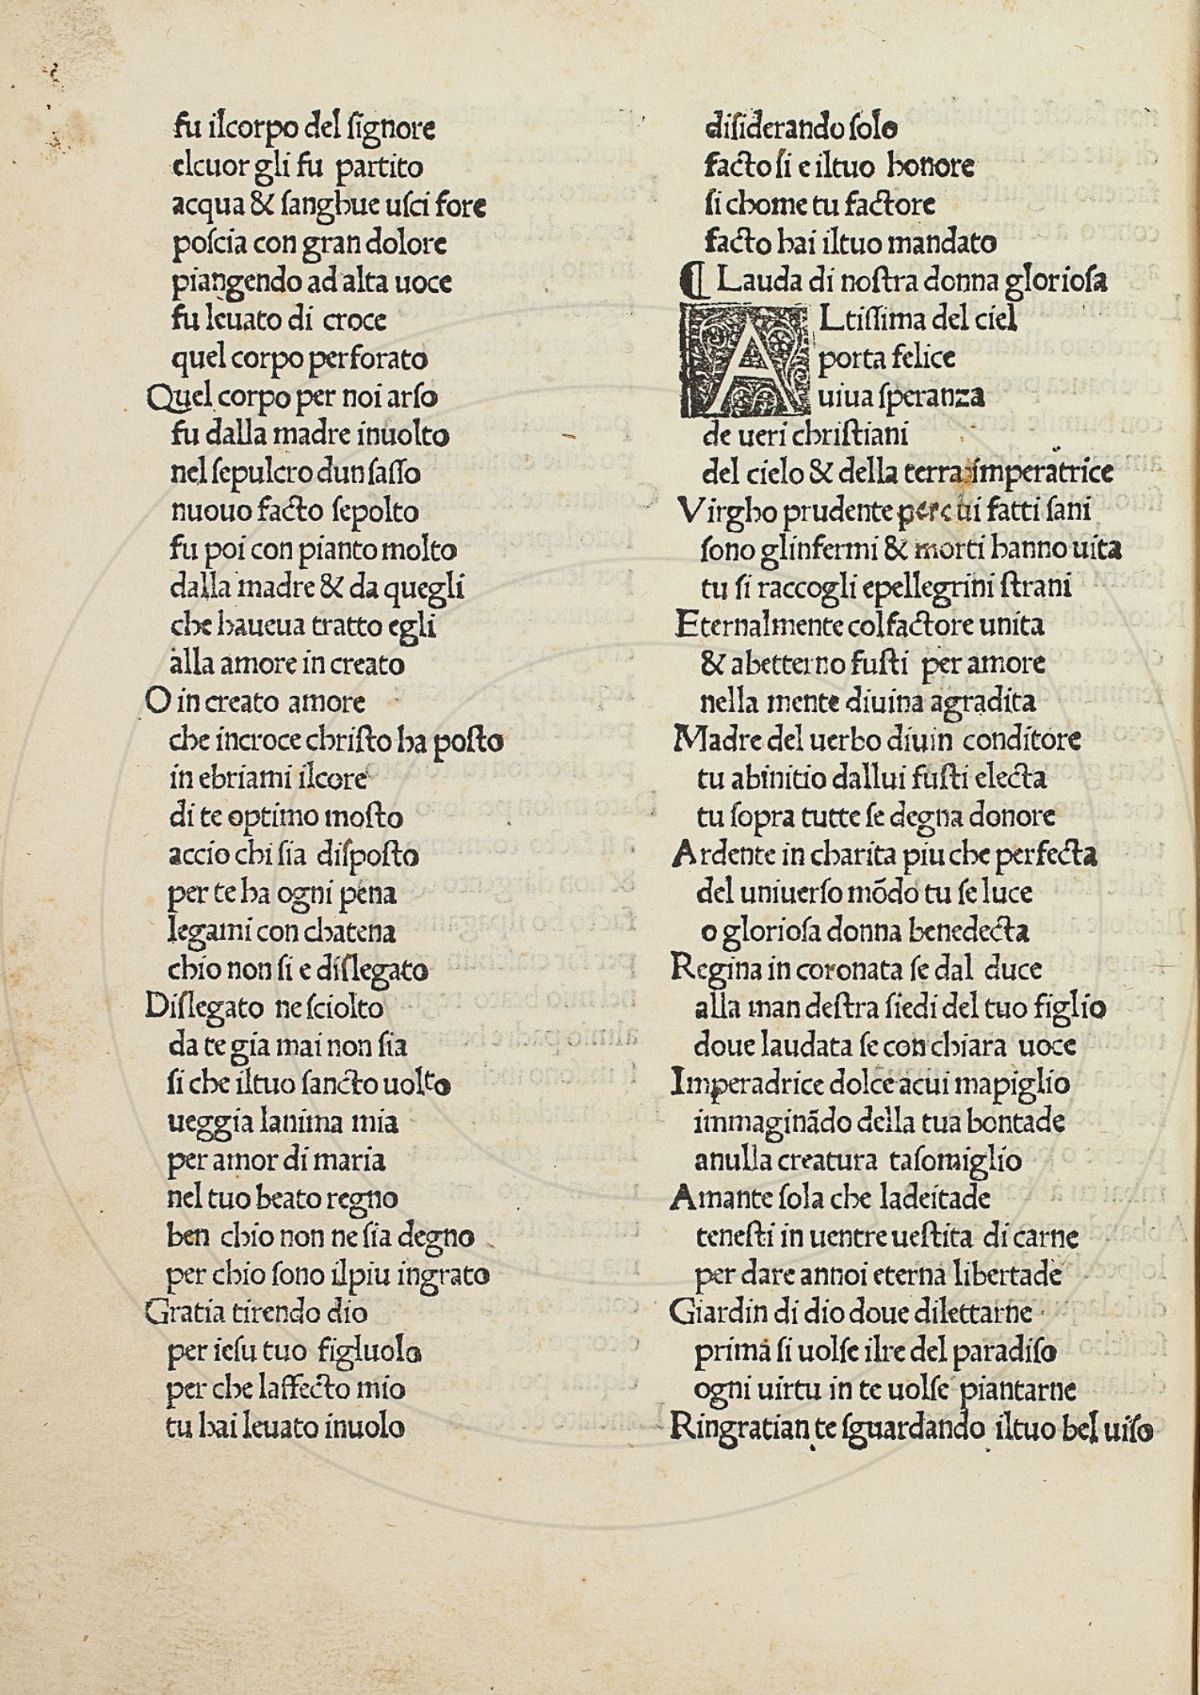 fu ilcorpo del signore
elcuor gli fu partito
acqua & sanghue usci fore
poscia con gran dolore
piangendo ad alta uoce
fu leuato di croce
quel corpo perforato
Quel corpo per noi arso
fu dalla madre inuolto
nel sepulcro dun sasso
nuouo facto sepolto
fu poi con pianto molto
dalla madre & da quegli
che haueua tratto egli
alla amore in creato
O in creato amore
che incroce christo ha posto
in ebriami ilcore
di te optimo mosto
accio chi sia disposto
per te ha ogni pena
legami con chatena
chio non si e dislegato
Dislegato ne sciolto
da te gia mai non sia
si che iltuo sancto uolto
ueggia lanima mia
per amor di maria
nel tuo beato regno
ben chio non ne sia degno
per chio sono ilpiu ingrato
Gratia tirendo dio
per iesu tuo figluolo
per che laffecto mio
tu hai leuato inuolo
disiderando solo
facto si e iltuo honore
si chome tu factore
facto hai iltuo mandato
¶ Lauda di nostra donna gloriosa
ALtissima del ciel
porta felice
uiua speranza
de ueri christiani
del cielo & della terra imperatrice
Virgho prudente per cui fatti sani
sono glinfermi & morti hanno uita
tu si raccogli epellegrini strani
Eternalmente colfactore unita
& abetterno fusti per amore
nella mente diuina agradita
Madre del uerbo diuin conditore
tu abinitio dallui fusti electa
tu sopra tutte se degna donore
Ardente in charita piu che perfecta
del uniuerso mōdo tu se luce
o gloriosa donna benedecta
Regina in coronata se dal duce
alla man destra siedi del tuo figlio
doue laudata se con chiara uoce
Imperadrice dolce acui mapiglio
immaginādo della tua bontade
anulla creatura tasomiglio
Amante sola che ladeitade
tenesti in uentre uestita di carne
per dare annoi eterna libertade
Giardin di dio doue dilettarne
prima si uolse ilre del paradiso
ogni uirtu in te uolse piantarne
Ringratian te sguardando iltuo bel uiso